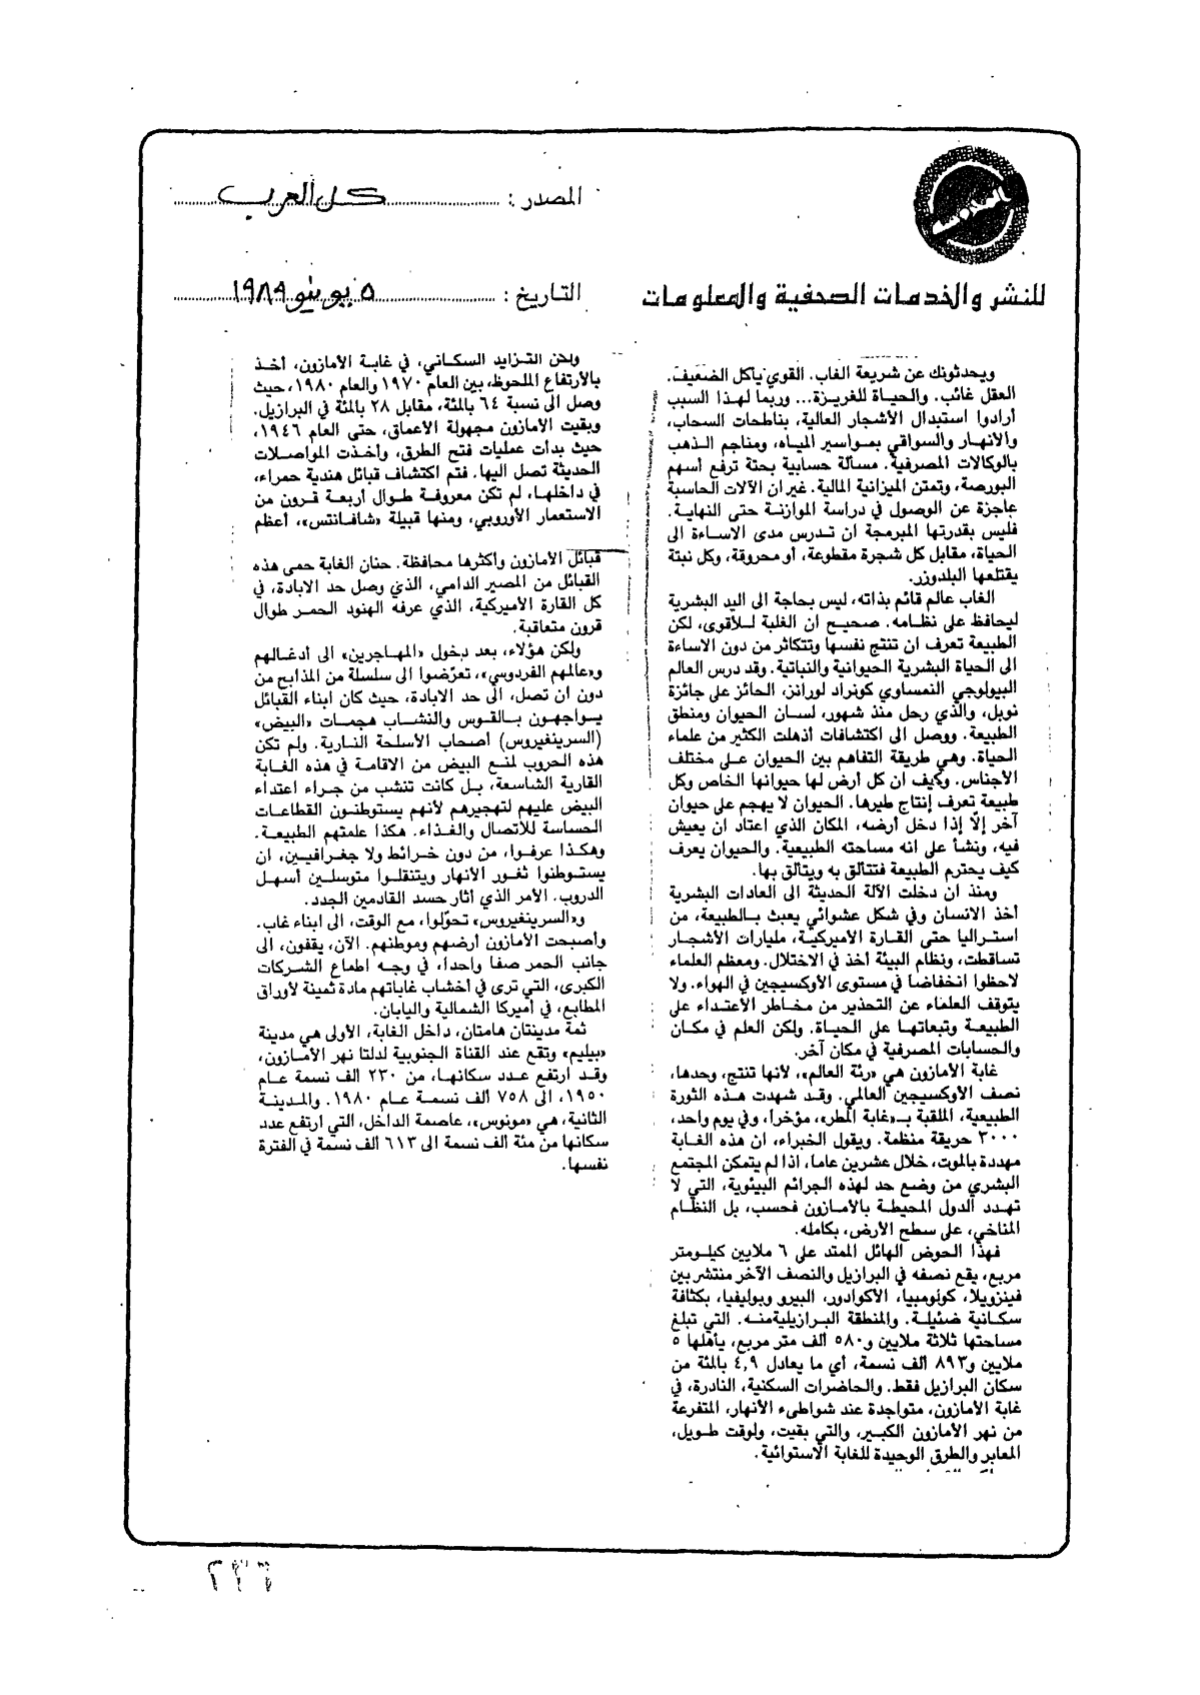 المصدر : كل العرب
للنشر والخدمات الصحفية والمعلومات
التاريخ : ٥ يونيو ١٩٨٩
ويحدثونك عن شريعة الغاب. القوي يأكل الضعيف.
العقل غائب. والحياة للغريزة... وربما لهذا السبب
أرادوا استبدال الأشجار العالية، بناطحات السحاب،
والانهار والسواقي بمواسير المياه، ومناجم الذهب
بالوكالات المصرفية. مسألة حسابية بحتة ترفع أسهم
البورصة، وتمتن الميزانية المالية. غير ان الآلات الحاسبة
عاجزة عن الوصول في دراسة الموازنة حتى النهاية.
فليس بقدرتها المبرمجة ان تدرس مدى الاساءة الى
الحياة، مقابل كل شجرة مقطوعة، أو محروقة، وكل نبتة
يقتلعها البلدوزر.
الغاب عالم قائم بذاته، ليس بحاجة الى اليد البشرية
ليحافظ على نظامه. صحيح ان الغلبة للأقوى، لكن
الطبيعة تعرف ان تنتج نفسها وتتكاثر من دون الاساءة
الى الحياة البشرية الحيوانية والنباتية. وقد درس العالم
البيولوجي النمساوي كونراد لورانز، الحائز على جائزة
نوبل، والذي رحل منذ شهور، لسان الحيوان ومنطق
الطبيعة. ووصل الى اكتشافات أذهلت الكثير من علماء
الحياة. وهي طريقة التفاهم بين الحيوان على مختلف
الأجناس. وكيف ان كل أرض لها حيوانها الخاص وكل
طبيعة تعرف إنتاج طيرها. الحيوان لا يهجم على حيوان
آخر إلاّ إذا دخل أرضه، المكان الذي اعتاد ان يعيش
فيه، ونشأ على انه مساحته الطبيعية. والحيوان يعرف
كيف يحترم الطبيعة فتتألق به ويتألق بها.
ومنذ ان دخلت الآلة الحديثة الى العادات البشرية
أخذ الانسان وفي شكل عشوائي يعبث بالطبيعة، من
استراليا حتى القارة الاميركية، مليارات الأشجار
تساقطت، ونظام البيئة أخذ في الاختلال. ومعظم العلماء
لاحظوا انخفاضاً في مستوى الأوكسيجين في الهواء. ولا
يتوقف العلماء عن التحذير من مخاطر الأعتداء على
الطبيعة وتبعاتها على الحياة. ولكن العلم في مكان
والحسابات المصرفية في مكان آخر.
غابة الأمازون هي «رئة العالم»، لانها تنتج، وحدها،
نصف الأوكسيجين العالمي. وقد شهدت هذه الثورة
الطبيعية، الملقبة بـ«غابة المطر»، مؤخراً، وفي يوم واحد،
٣٠٠٠ حريقة منظمة. ويقول الخبراء، ان هذه الغابة
مهددة بالموت، خلال عشرين عاماً، اذا لم يتمكن المجتمع
البشري من وضع حد لهذه الجرائم البيئوية، التي لا
تهدد الدول المحيطة بالامازون فحسب، بل النظام
المناخي، على سطح الأرض، بكامله.
فهذا الحوض الهائل الممتد على ٦ ملايين كيلومتر
مربع، يقع نصفه في البرازيل والنصف الآخر منتشر بين
فينزويلا، كولومبيا، الأكوادور، البيرو وبوليفيا، بكثافة
سكانية ضئيلة. والمنطقة البرازيلية منه. التي تبلغ
مساحتها ثلاثة ملايين و٥٨٠ ألف متر مربع، يأهلها ٥
ملايين و٨٩٣ ألف نسمة، أي ما يعادل ٤,٩ بالمئة من
سكان البرازيل فقط. والحاضرات السكنية، النادرة، في
غابة الأمازون، متواجدة عند شواطىء الأنهار، المتفرعة
من نهر الأمازون الكبير، والتي بقيت، ولوقت طويل،
المعابر والطرق الوحيدة للغابة الأستوائية.
ولكن التزايد السكاني، في غابة الأمازون، أخذ
بالأرتفاع الملحوظ، بين العام ١٩٧٠ والعام ١٩٨٠، حيث
وصل الى نسبة ٦٤ بالمئة، مقابل ٢٨ بالمئة في البرازيل.
وبقيت الأمازون مجهولة الأعماق، حتى العام ١٩٤٦،
حيث بدأت عمليات فتح الطرق، وأخذت المواصلات
الحديثة تصل اليها. فتم اكتشاف قبائل هندية حمراء،
في داخلها، لم تكن معروفة طوال أربعة قرون من
الاستعمار الأوروبي، ومنها قبيلة «شافانتس»، أعظم
قبائل الأمازون وأكثرها محافظة. حنان الغابة حمى هذه
القبائل من المصير الدامي، الذي وصل حد الابادة، في
كل القارة الأميركية، الذي عرفه الهنود الحمر طوال
قرون متعاقبة.
ولكن هؤلاء، بعد دخول «المهاجرين» الى أدغالهم
و«عالمهم الفردوسي»، تعرّضوا الى سلسلة من المذابح من
دون ان تصل، الى حد الابادة، حيث كان ابناء القبائل
يواجهون بالقوس والنشاب هجمات «البيض»
(السرينغيروس) أصحاب الأسلحة النارية. ولم تكن
هذه الحروب لمنع البيض من الاقامة في هذه الغابة
القارية الشاسعة، بل كانت تنشب من جراء اعتداء
البيض عليهم لتهجيرهم لأنهم يستوطنون القطاعات
الحساسة للأتصال والغذاء. هكذا علمتهم الطبيعة.
وهكذا عرفوا، من دون خرائط ولا جغرافيين، ان
يستوطنوا ثغور الأنهار ويتنقلوا متوسلين أسهل
الدروب. الأمر الذي أثار حسد القادمين الجدد.
و«السرينغيروس» تحوّلوا، مع الوقت، الى ابناء غاب.
وأصبحت الأمازون أرضهم وموطنهم. الآن، يقفون، الى
جانب الحمر صفاً واحداً، في وجه اطماع الشركات
الكبرى، التي ترى في أخشاب غاباتهم مادة ثمينة لأوراق
المطابع، في أميركا الشمالية واليابان.
ثمة مدينتان هامتان، داخل الغابة، الأولى هي مدينة
«بيليم» وتقع عند القناة الجنوبية لدلتا نهر الأمازون،
وقد ارتفع عدد سكانها، من ٢٣٠ الف نسمة عام
١٩٥٠، الى ٧٥٨ ألف نسمة عام ١٩٨٠. والمدينة
الثانية، هي «مونوس»، عاصمة الداخل، التي ارتفع عدد
سكانها من مئة ألف نسمة الى ٦١٣ ألف نسمة في الفترة
نفسها.